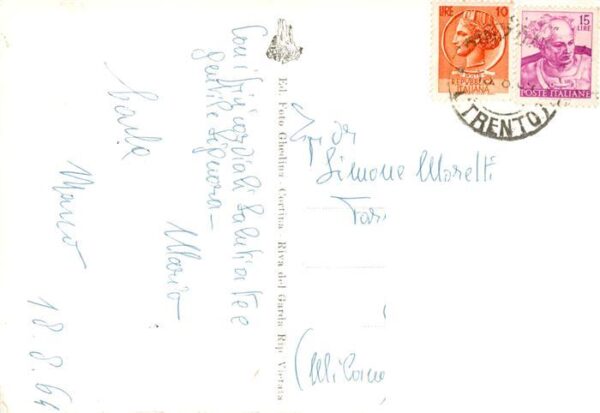 Con i più cordiali saluti a te e
gentile signora -
Mario
Carla
Marco
18.8.64
Ed. Foto Ghedina - Cortina - Riva del Garda Rip. Vietata
LIRE 10
REPUBBLICA
ITALIANA
15
LIRE
POSTE ITALIANE
TRENTO
Simone Moretti
(Milano